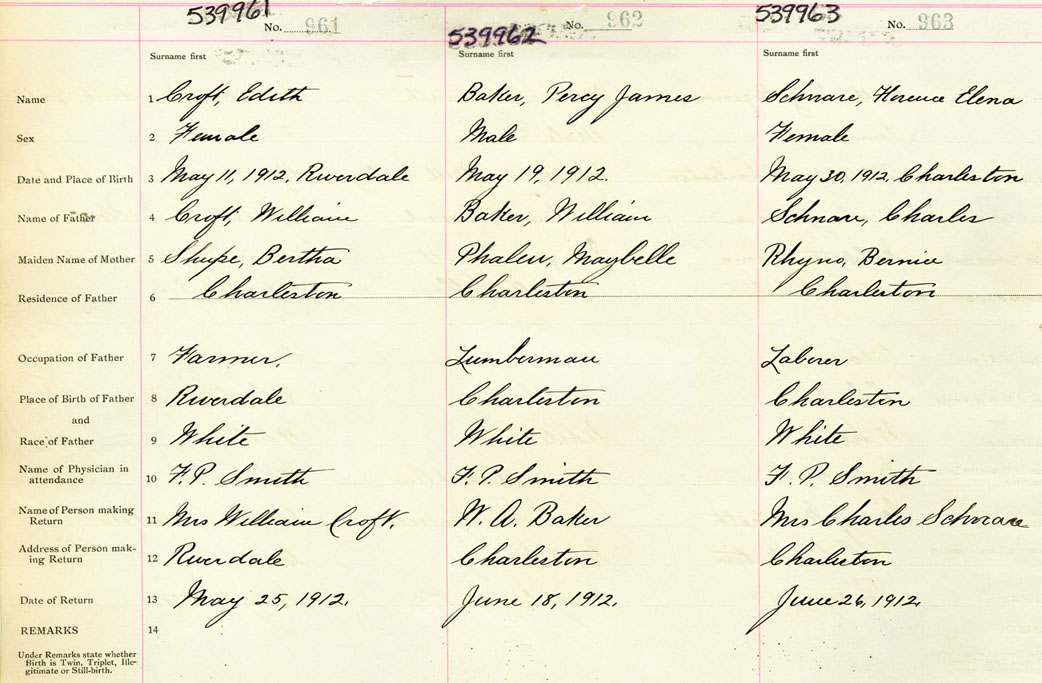 539961 No. 961 539962 No. 962 539963 No. 963
Surname first Surname first Surname first
Name 1 Croft, Edith Baker, Percy James Schnare, Florence Elena
Sex 2 Female Male Female
Date and Place of Birth 3 May 11, 1912, Riverdale May 19, 1912. May 30, 1912, Charleston
Name of Father 4 Croft, William Baker, William Schnare, Charles
Maiden Name of Mother 5 Shupe, Bertha Phalen, Maybelle Rhyno, Bernice
Residence of Father 6 Charleston Charleston Charleston
Occupation of Father 7 Farmer. Lumberman Laborer
Place of Birth of Father 8 Riverdale Charleston Charleston
and
Race of Father 9 White White White
Name of Physician in
attendance 10 F. P. Smith F. P. Smith F. P. Smith
Name of Person making
Return 11 Mrs William Croft. W. A. Baker Mrs Charles Schnare
Address of Person mak-
ing Return 12 Riverdale Charleston Charleston
Date of Return 13 May 25, 1912. June 18, 1912. June 26, 1912.
REMARKS 14
Under Remarks state whether
Birth is Twin, Triplet, Ille-
gitimate or Still-birth.